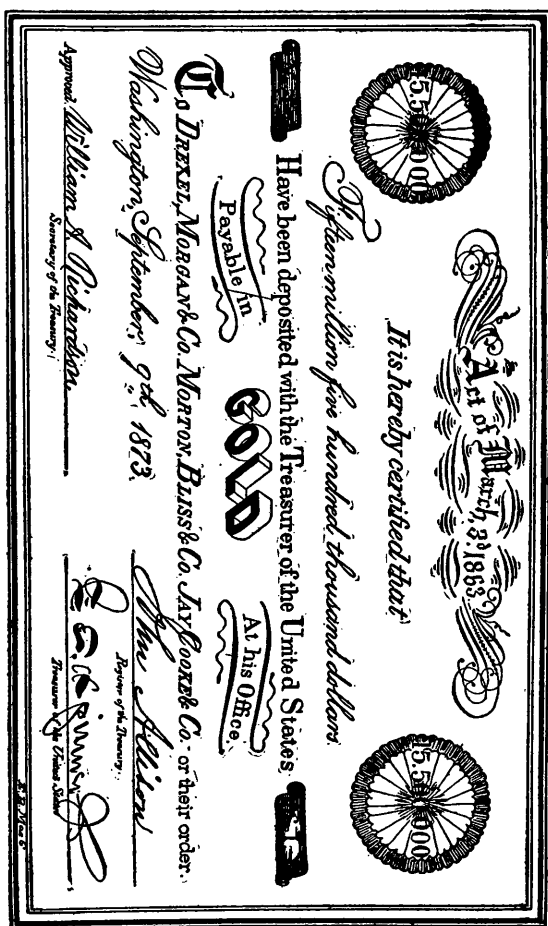 Act of March, 3d 1863
15.5 000
15.5 000
It is hereby certified that
Fifteen million five hundred thousand dollars
Have been deposited with the Treasurer of the United States,
Payable in
GOLD
At his Office.
To DREXEL, MORGAN & Co. MORTON, BLISS & Co. JAY COOKE & Co. or their order.
Washington, September, 9th, 1873.
John Allison
Register of the Treasury.
Approved, William A. Richardson
Secretary of the Treasury.
Treasurer of the United States